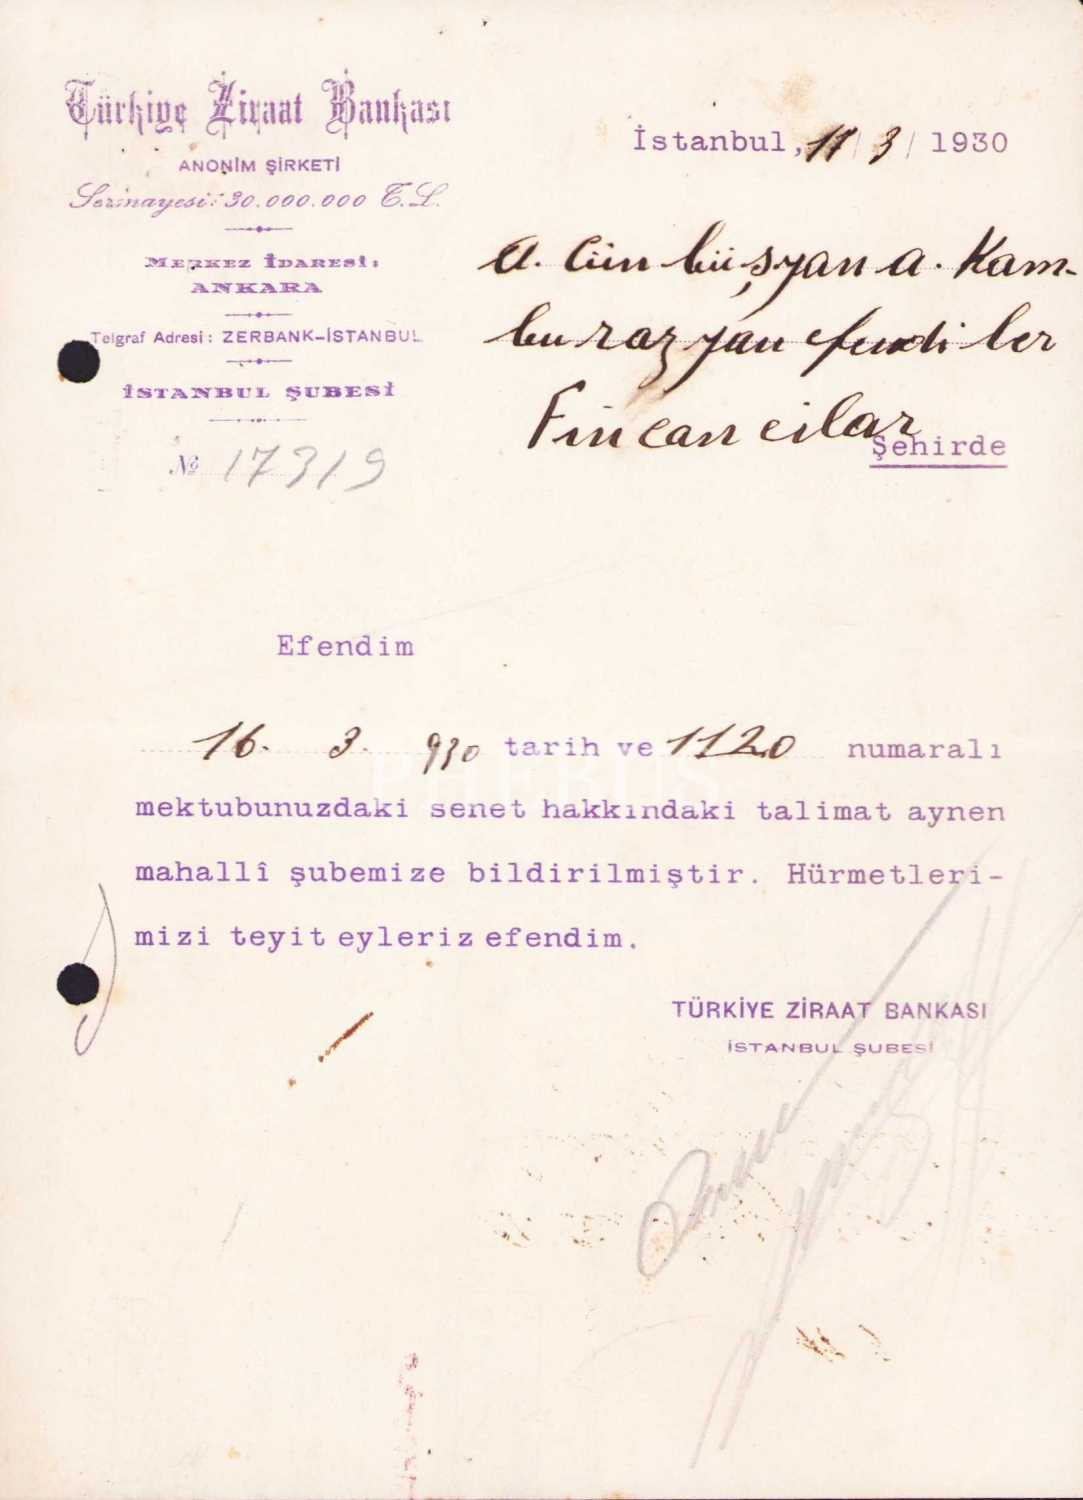 Türkiye Ziraat Bankası
ANONİM ŞİRKETİ
Sermayesi: 30.000.000 T.L.
MERKEZ İDARESİ:
ANKARA
Telgraf Adresi: ZERBANK-İSTANBUL
İSTANBUL ŞUBESİ
№ 17319
İstanbul, 17/3/1930
A. Cünbüşyan a. Kam-
burazyan efendiler
Fincancılar
Şehirde
Efendim
16. 3. 930 tarih ve 1120 numaralı
mektubunuzdaki senet hakkındaki talimat aynen
mahallî şubemize bildirilmiştir. Hürmetleri-
mizi teyit eyleriz efendim.
PHEBUS
TÜRKİYE ZİRAAT BANKASI
İSTANBUL ŞUBESİ